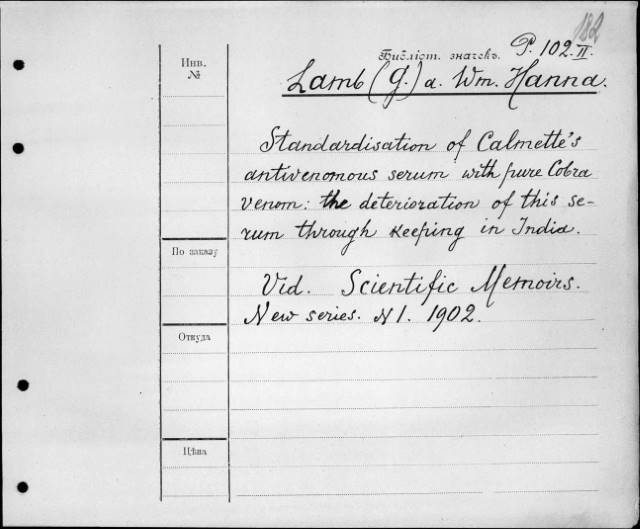 182
Инв.
№
Библіот. значекъ. P. 102. II.
Lamb (G.) a. Wm. Hanna.
Standardisation of Calmette's
antivenomous serum with pure Cobra
venom: the deterioration of this se-
rum through keeping in India.
По заказу
Vid. Scientific Memoirs.
New series. N 1. 1902.
Откуда
Цѣна